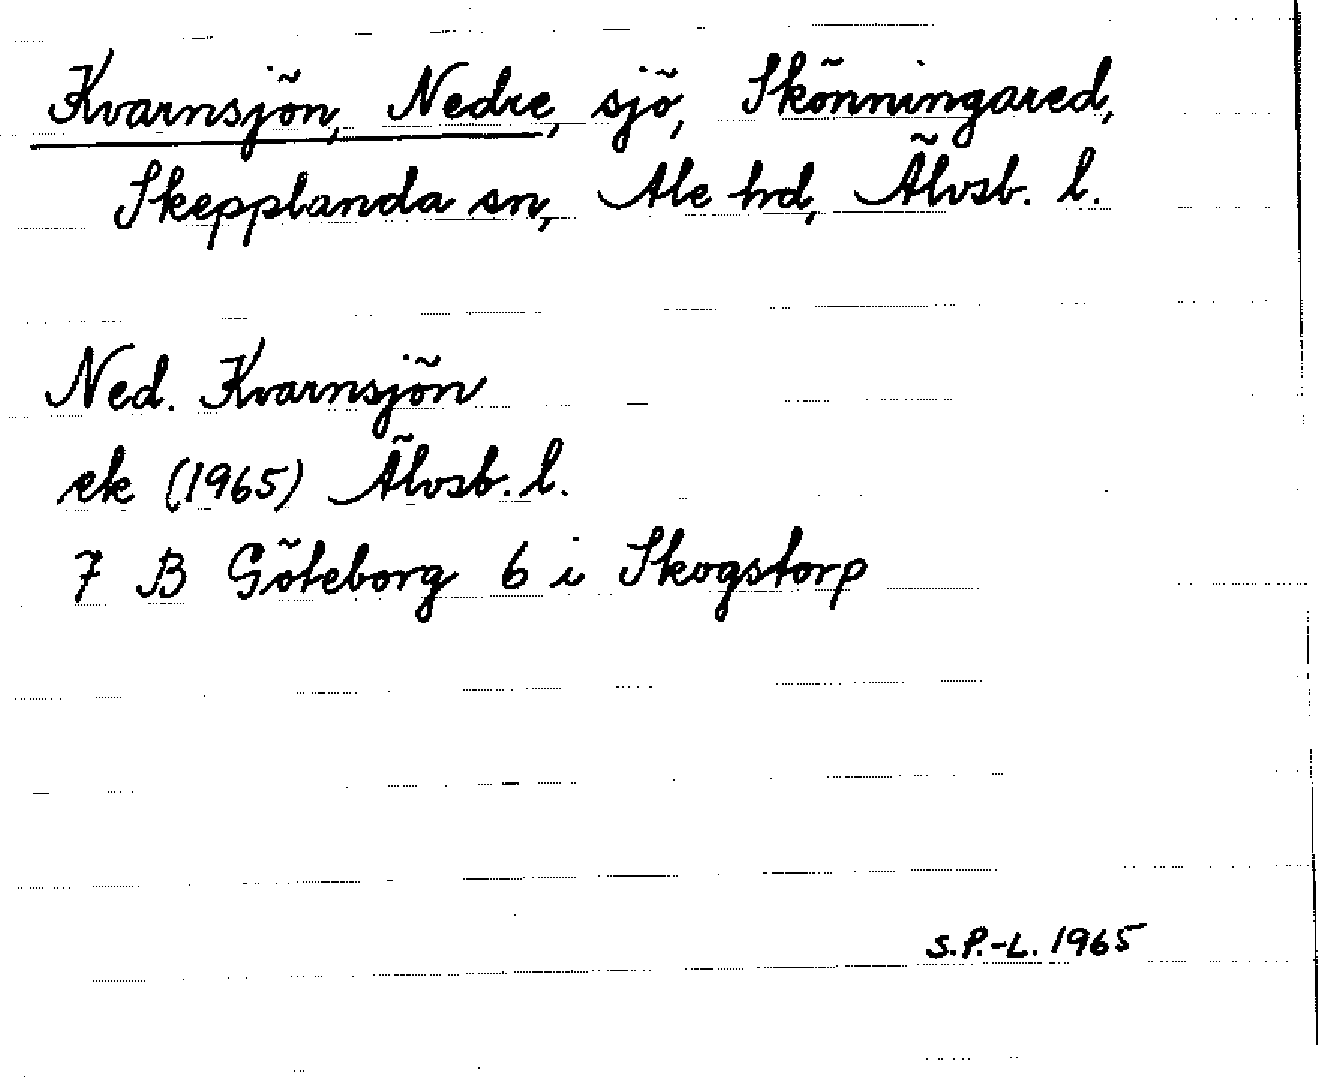 Kvarnsjön, Nedre, sjö, Skönningared,
Skepplanda sn, Ale hd, Älvsb. l.
Ned. Kvarnsjön
ek (1965) Älvsb. l.
7 B Göteborg 6 i Skogstorp
S.P.-L. 1965